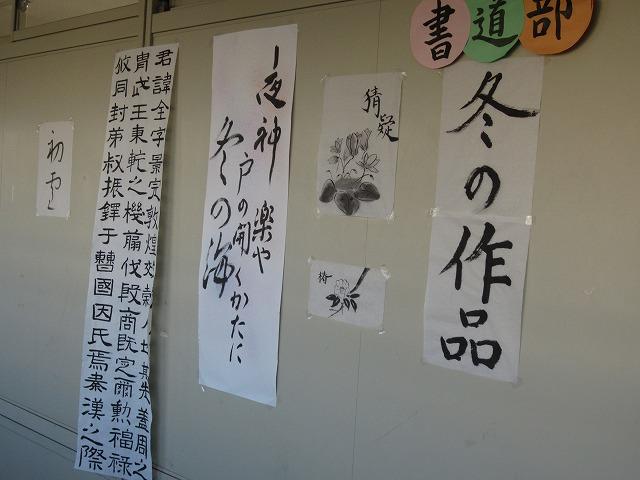 書道部
冬の作品
猜疑
夜神楽や
戸の開くかたに
冬の海
君諱全字景完敦煌效穀人也其先蓋周之
冑武王秉乾之機翦伐殷商既定爾勳福祿
攸同封弟叔振鐸于曹國因氏焉秦漢之際
初雪